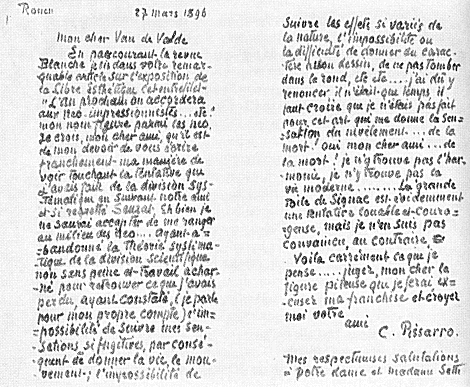 Rouen 27 mars 1896
mon cher Van de Velde
En parcourant la revue
Blanche je lis dans votre remar-
quable article sur l'exposition de
la Libre esthétique cet entrefilet
"L'an prochain on accordera
aux néo-impressionnistes...etc"
mon nom figure parmi les néo.
Je crois, mon cher ami, qu'il est
de mon devoir de vous écrire
franchement ma manière de
voir touchant la tentative que
j'avais faite de la division Sys-
tématique en suivant notre ami
et si regretté Seurat. Eh bien je
ne saurai accepter de me ranger
au milieu des néo... ayant a-
bandonné la Théorie systéma-
tique de la division scientifique
non sans peine et travail achar-
né pour retrouver ce que j'avais
perdu, ayant constaté, (je parle
pour mon propre compte) l'im-
possibilité de suivre mes sen-
sations si fugitives, par consé-
quent de donner la vie, le mou-
vement; l'impossibilité de
Suivre les effets si variés de
la nature, l'impossibilité ou
la difficulté de donner du carac-
tère à son dessin, de ne pas tomber
dans le rond, etc etc.... j'ai dû y
renoncer, il n'était que temps, il
faut croire que je n'étais pas fait
pour cet art qui me donne la Sen-
sation du nivelement.... de la
mort! oui mon cher ami... de
la mort! je n'y trouve pas l'har-
monie, je n'y trouve pas la
vie moderne........ La grande
toile de Signac est évidemment
une tentative louable et coura-
geuse, mais je n'en suis pas
convaincu, au contraire.
Voila carrément ce que je
pense..... jugez, mon cher la
figure piteuse que je ferai ex-
cusez ma franchise et croyez
moi votre
ami
C. Pissarro.
mes respectueuses salutations
à votre dame et madame Sethe